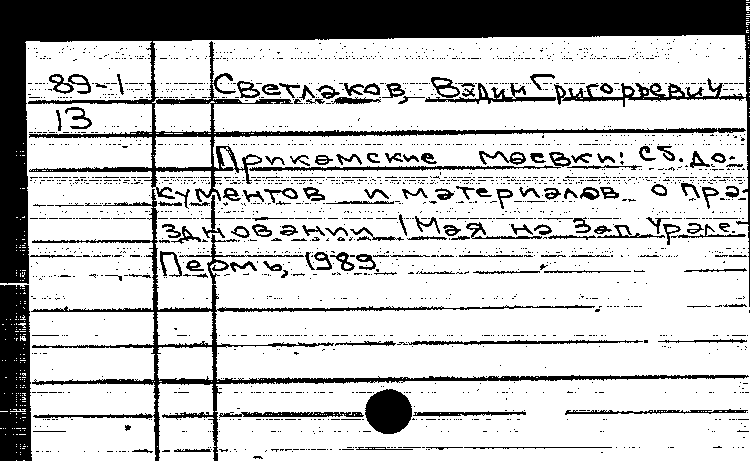 89-1 Светлаков, Вадим Григорьевич
13
Прикамские маевки: Сб. до-
кументов и материалов о пра-
здновании 1 Мая на Зап. Урале.-
Пермь, 1989.